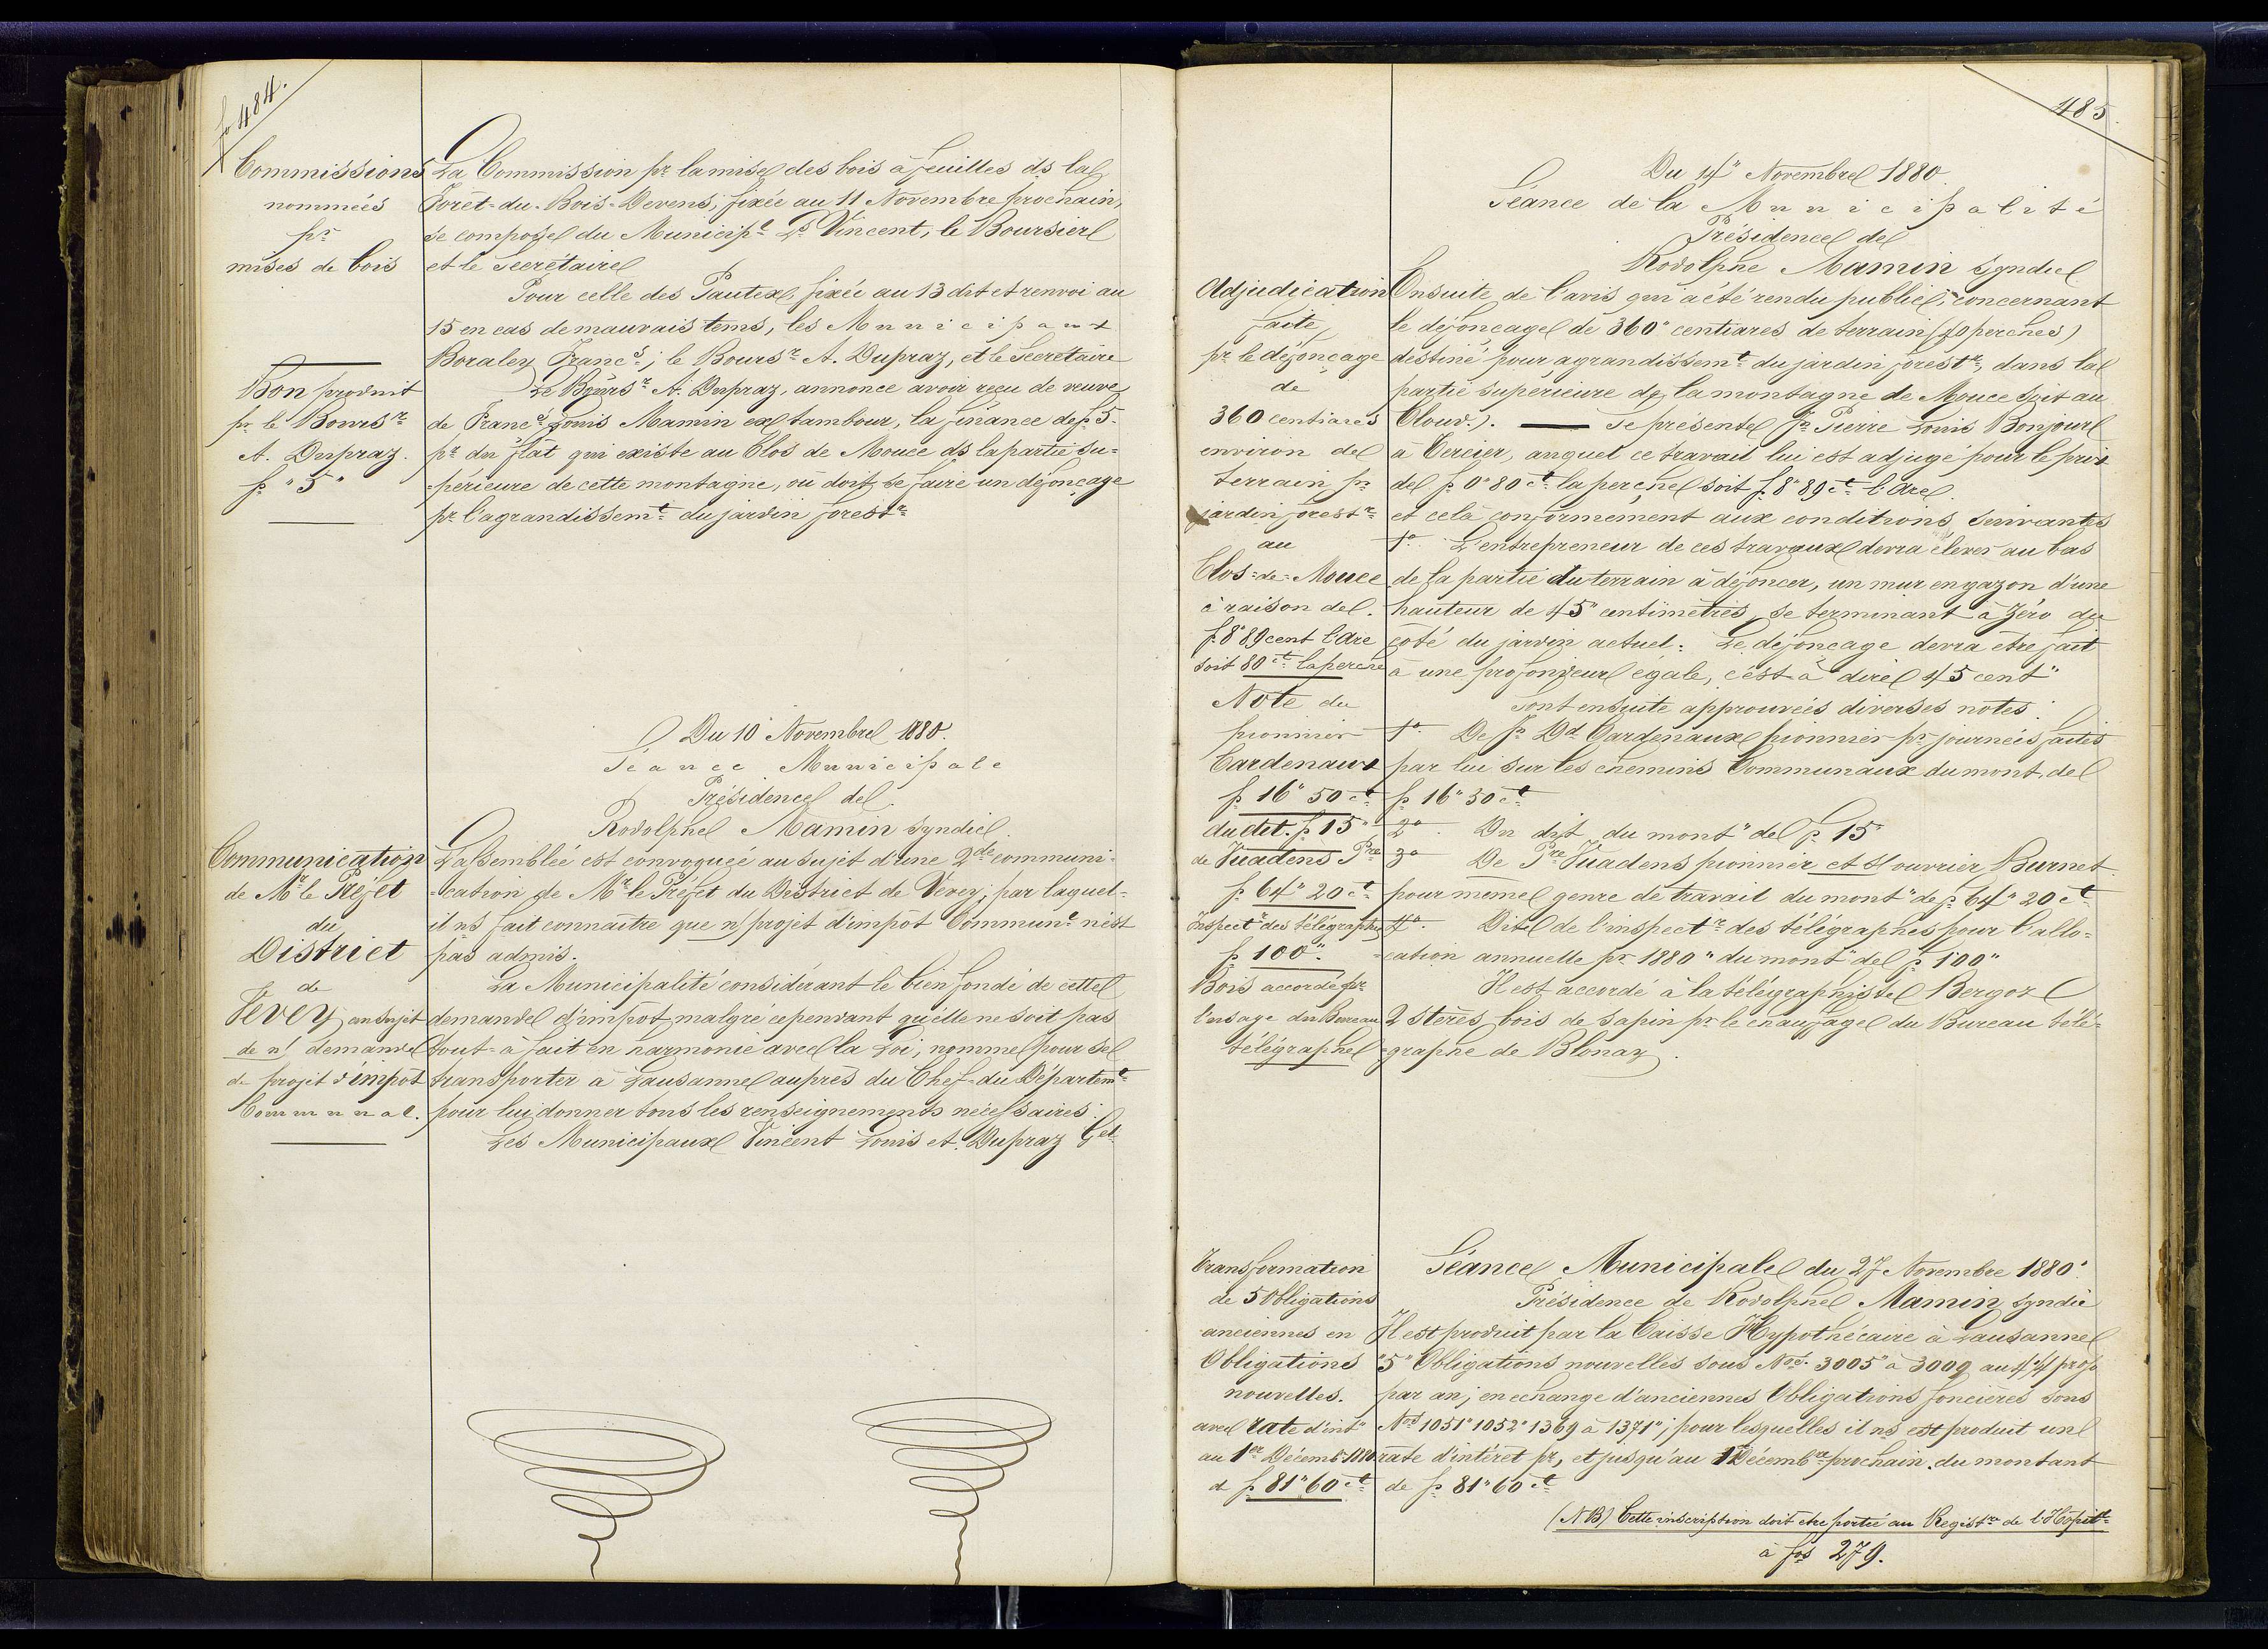 fo 484.
Commissions
nommées
pr
mises de bois
La Commission pr la mise des bois à feuilles ds la
Forêt-du-Bois-Devens, fixée au 11 Novembre prochain,
se compose du Municipl Ls Vincent, le Boursier
et le Secrétaire
Pour celle des Pautex, fixée au 13 dit et renvoi au
15 en cas de mauvais tems, les Municipaux
Boraley Francs; le Boursr A. Dupraz, et le Secrétaire
Bon produit
pr le Boursr
A. Dupraz.
fr "5"
Le Boursr A. Dupraz, annonce avoir reçu de veuve
de Francs Louis Mamin ex tambour, la finance de fr 5.
pr du flat qui existe au Clos de Mouce ds la partie su=
=périeure de cette montagne, où doit se faire un défonçage
pr l'agrandissemt du jardin forestr
Du 10 Novembre 1880.
Séance Municipale
Présidence de
Rodolphe Mamin Syndic.
Communication
de Mr le Préfet
du
District
de
Vevey au sujet
de n/ demande
de projet d'impôt
Communal.
L'assemblée est convoquée au sujet d'une 2de communi=
=cation de Mr le Préfet du District de Vevey; par laquel=
il ns fait connaître que n/ projet d'impôt Communl n'est
pas admis.
La Municipalité considérant le bien fondé de cette
demande d'impôt malgré cependant qu'elle ne soit pas
tout-à-fait en harmonie avec la Loi, nomme pour se
transporter à Lausanne auprès du Chef-du-Départemt
pour lui donner tous les renseignements nécessaires:
Les Municipaux Vincent Louis et Dupraz Gel
485.
Du 14" Novembre 1880
Séance de la Municipalité
Présidence de
Rodolphe Mamin Syndic
Adjudication
faite
pr le défonçage
de
360 centiares
environ de
terrain pr
jardin forestr
au
Clos-de-Mouce
à raison de
fr 8"89 cent l'Are
soit 80 ct la perche
Ensuite de l'avis qui a été rendu public, concernant
le défonçage de 360" centiares de terrain (40 perches)
destiné pour agrandissemt du jardin forestr, dans la
partie supérieure de la montagne de Mouce soit au
Cloud.). Se présente Jn Pierre Louis Bonjour
à Cercier, auquel ce travail lui est adjugé pour le prix
de fr 0"80 ct la perche soit fr 8"89 ct l'Are.
et cela conformément aux conditions suivantes
1o. L'entrepreneur de ces travaux devra élever au bas
de la partie du terrain à défoncer, un mur en gazon d'une
hauteur de 45" centimètres, se terminant à Zéro du
côté du jardin actuel: Le défonçage devra être fait
à une profondeur égale, c'est-à-dire 45 cent"
Note du
pionnier
Cardenaux
fr 16"50 ct
du dit. fr 15"
de Vuadens Pre
fr 64"20 ct
Inspectr des télégraphes
fr 100".
Bois accordé pr
l'usage du Bureau
télégraphe
Sont ensuite approuvées diverses notes:
1o. De Jn Dd Cardenaux pionnier pr journées faites
par lui sur les chemins Communaux du mont. de
fr 16"50 ct
2o. Du dit du mont" de fr 15"
3o De Pre Vuadens pionnier et s/ ouvrier Burnet.
pour même genre de travail du mont" de fr 64"20 ct
4o. Dite de l'inspectr des télégraphes pour l'allo=
=cation annuelle pr 1880" du mont" de fr 100"
Il est accordé à la télégraphiste Bergoz
2 stères bois de sapin pr le chauffage du Bureau télé=
=graphe de Blonay.
Transformation
de 5 Obligations
anciennes en
Obligations
nouvelles.
avec rate d'int"
au 1er Décembre 1880
d fr 81"60 ct
Séance Municipale du 27 Novembre 1880"
Présidence de Rodolphe Mamin Syndic
Il est produit par la Caisse Hypothécaire à Lausanne
"5" Obligations nouvelles sous Nos. 3005" à 3009 au 4 1/4 pr%
par an; en échange d'anciennes Obligations foncières sous
Nos 1051" 1052" 1369 à 1371"; pour lesquelles il ns est produit une
rate d'intérêt pr, et jusqu'au 1r Décembre prochain. du montant
de fr 81"60 ct
(NB) Cette inscription doit être portée au Registre de l'Hopitl
à fos 279.